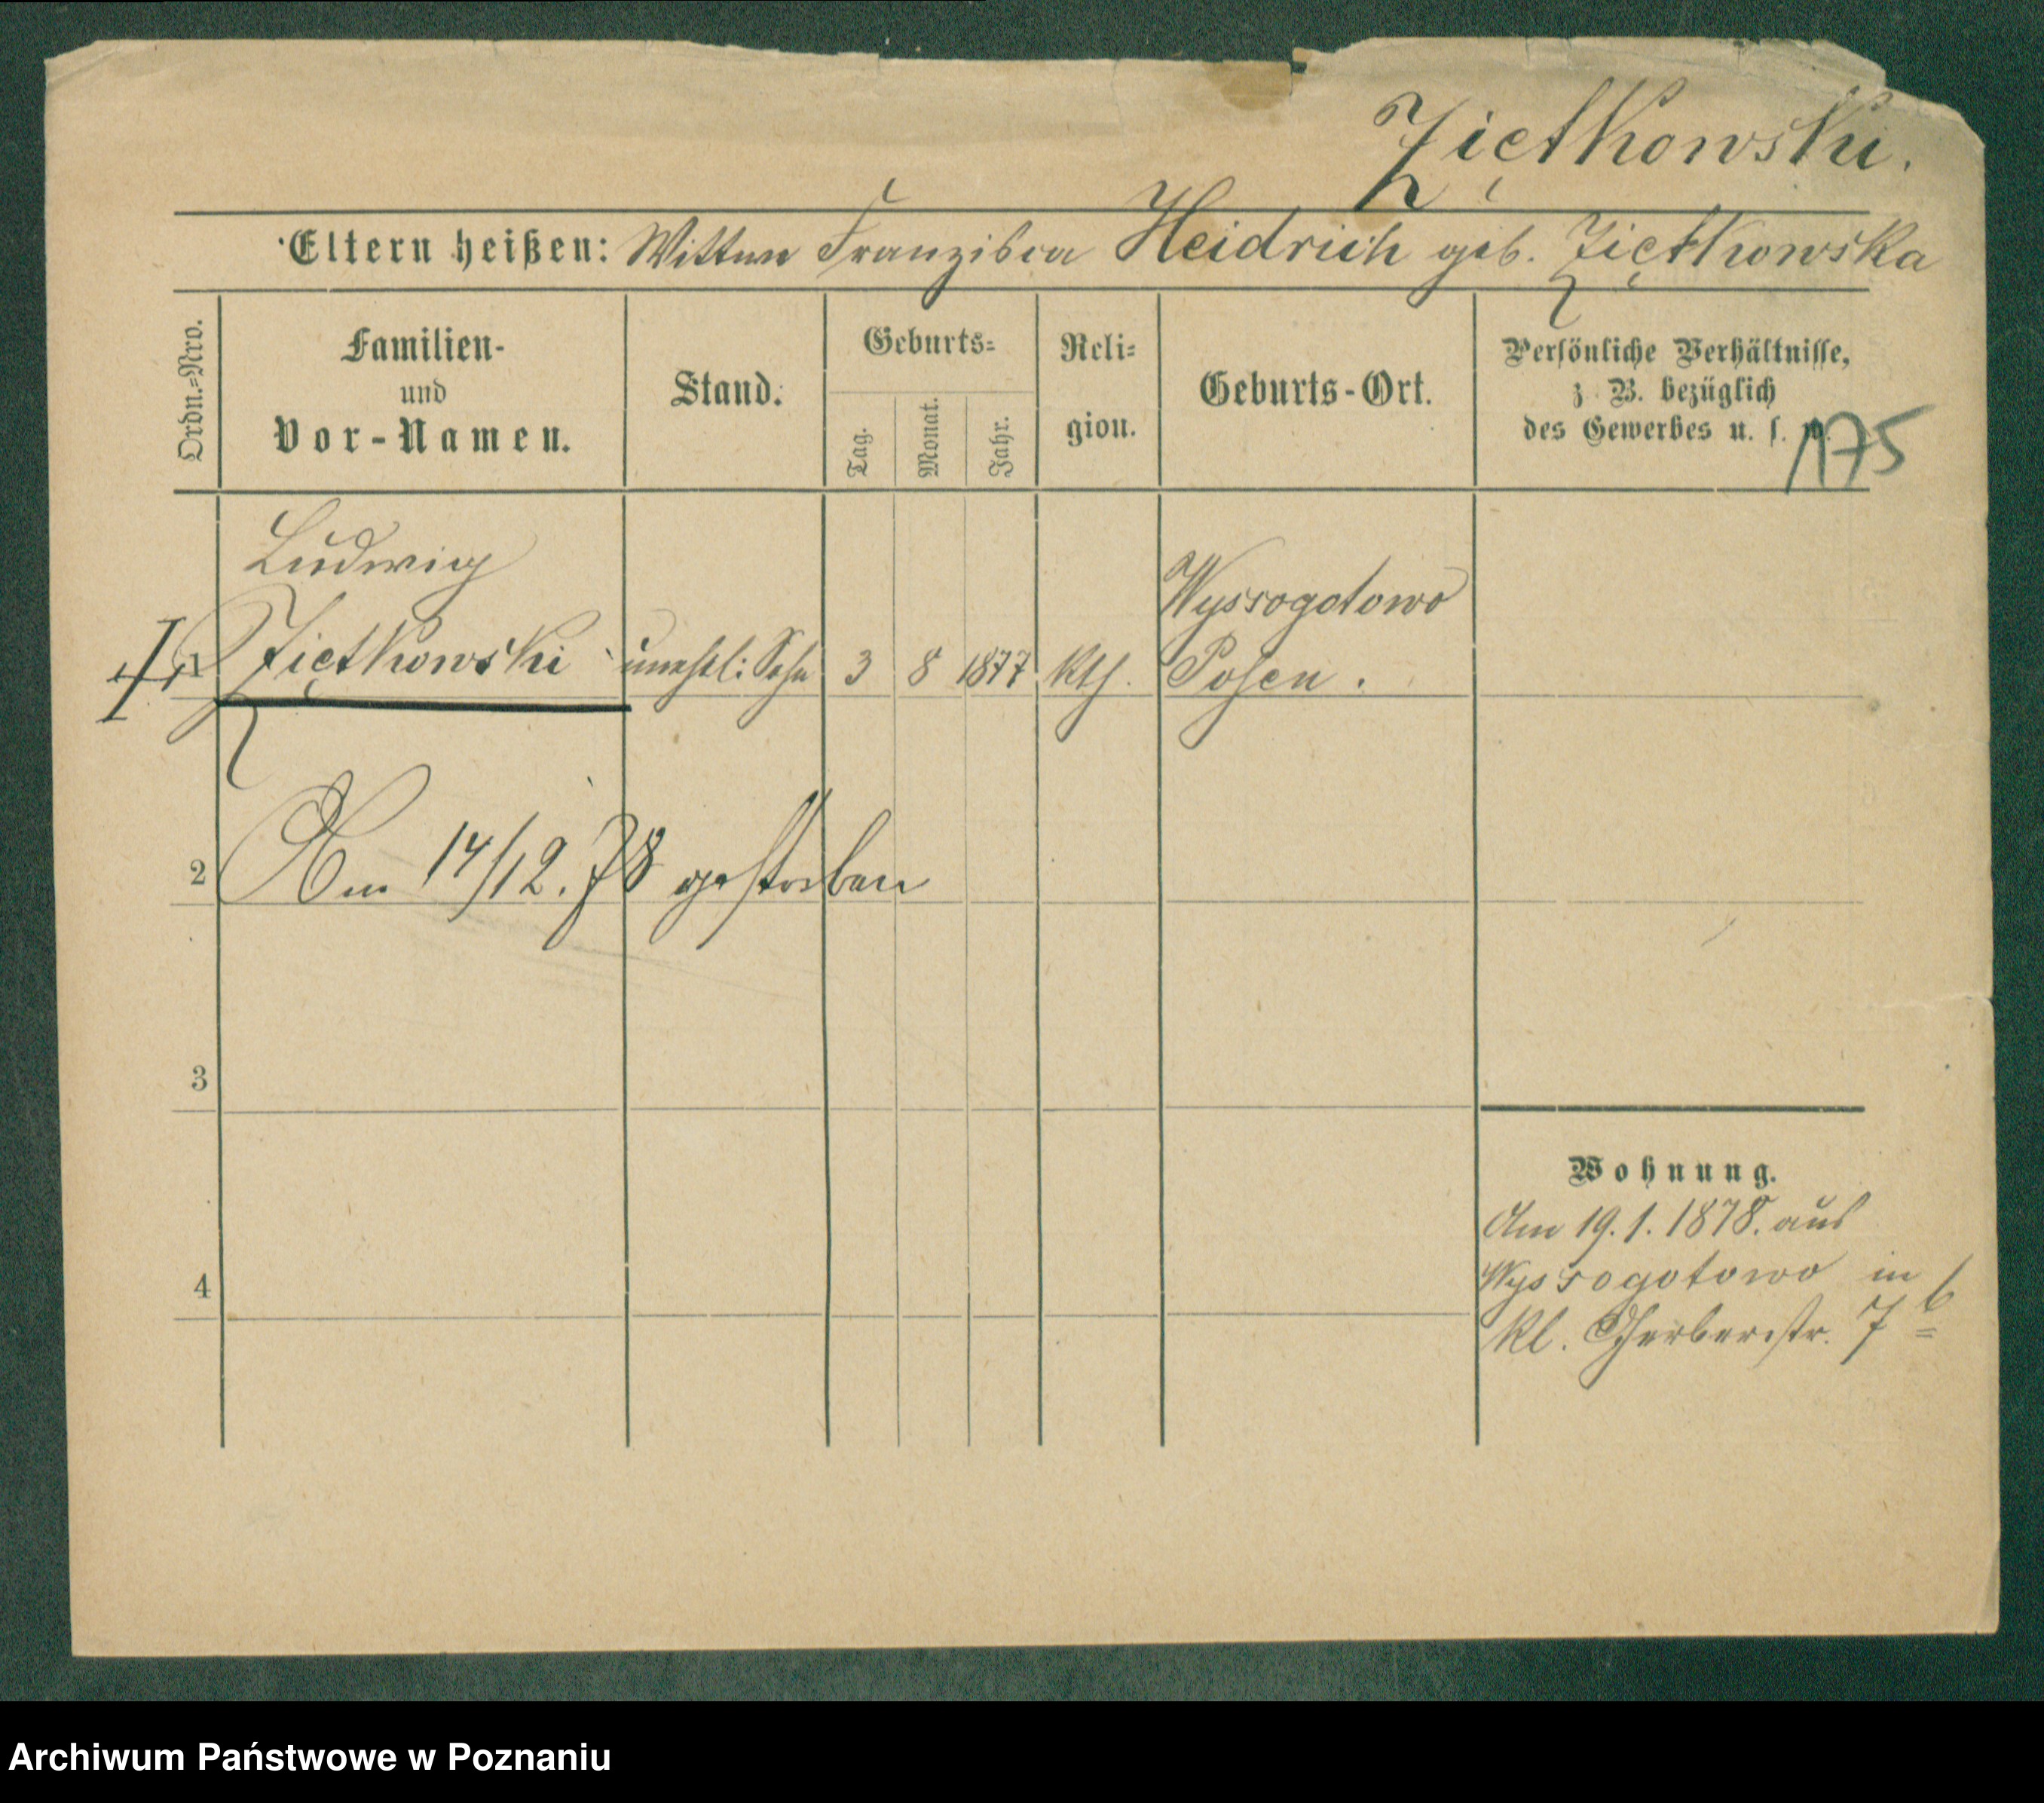 Ziętkowski.
Eltern heißen: Wittwe Franziska Heidrich geb. Ziętkowska
Ordn.=Nro.
Familien-
und
Vor-Namen.
Stand.
Geburts=
Tag.
Monat.
Jahr.
Reli=
gion.
Geburts-Ort.
Persönliche Verhältnisse,
z. B. bezüglich
des Gewerbes u. s. w.
175
Ludwig
Wyssogotowo
1 Ziętkowski unehel: Sohn 3 8 1877 kth. Posen.
2 Am 14/12.78 gestorben
3
Wohnung.
Am 19.1.1878. aus
4 Wyssogotowo in
Kl. Gerberstr. 7 b
Archiwum Państwowe w Poznaniu